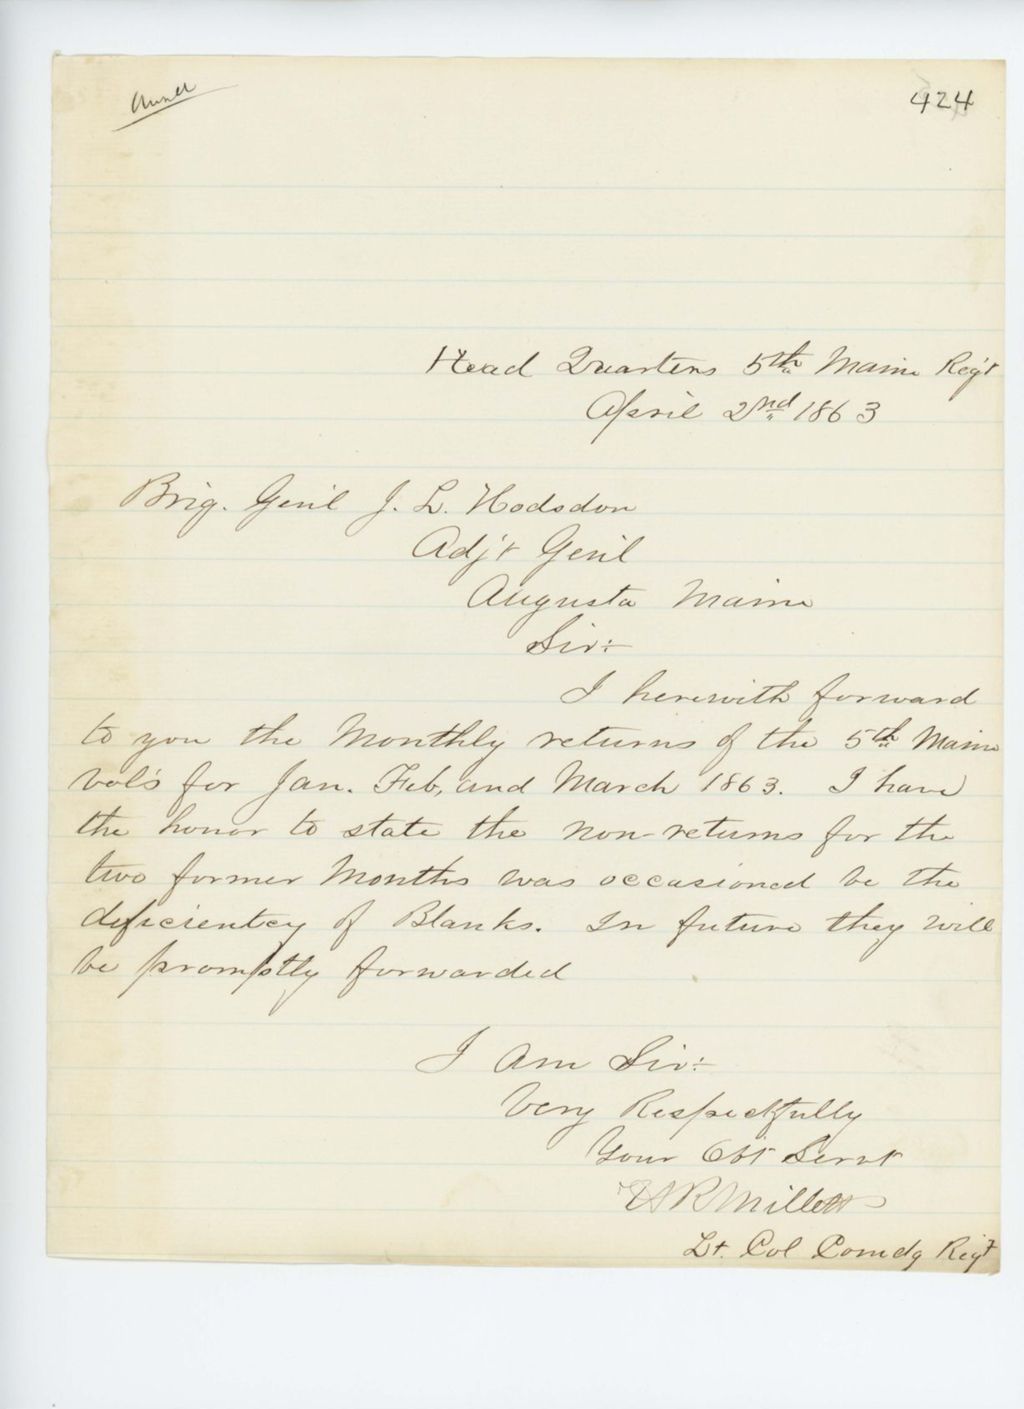 424
Head Quarters 5th Maine Reg't
April 2nd 1863
Brig. Gen'l J. L. Hodsdon
Adj't Gen'l
Augusta Maine
Sir:
I herewith forward
to you the Monthly returns of the 5th Maine
Vol's for Jan. Feb, and March 1863. I have
the honor to state the non-returns for the
two former Months was occasioned be the
deficientcy of Blanks. In future they will
be promptly forwarded
I Am Sir:
Very Respectfully
Your Obt Servt
H R Millett
Lt. Col Comdg Reg't